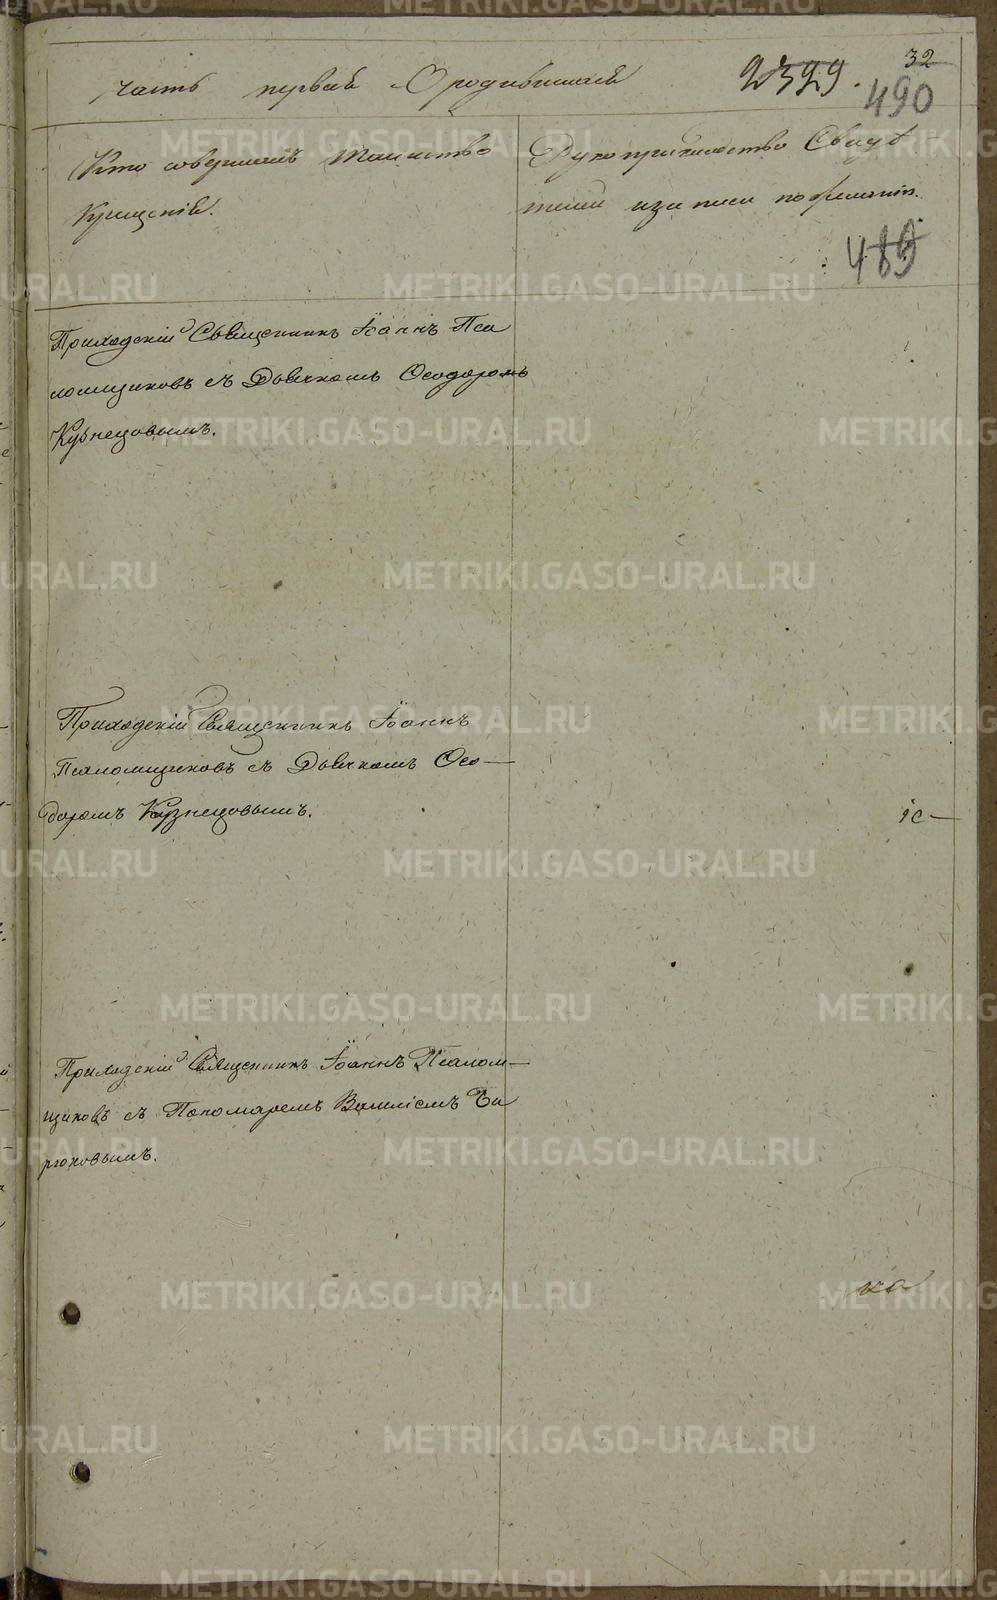 32
часть первая О родившихся 2399.
490
Кто совершалъ таинство
Крещенія.
Рукоприкладство Свидѣ
телей записи по желанію.
489
Приходскій Священникъ Іоаннъ Пса
ломщиковъ съ Дьячкомъ Ѳеодоромъ
Кузнецовымъ.
Приходскій Священникъ Іоаннъ
Псаломщиковъ съ Дьячкомъ Ѳео-
доромъ Кузнецовымъ.
Приходскій Священникъ Іоаннъ Псалом-
щиковъ съ Пономаремъ Василіемъ Би
рюковымъ.
METRIKI.GASO-URAL.RU